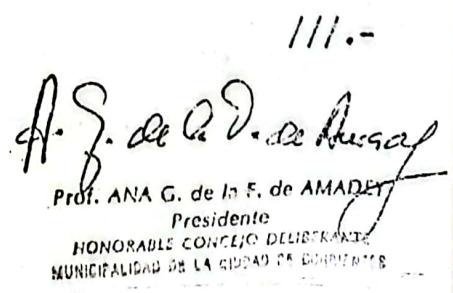 ///.-
A. G. de la F. de Amadey
Prof. ANA G. de la F. de AMADEY
Presidente
HONORABLE CONCEJO DELIBERANTE
MUNICIPALIDAD DE LA CIUDAD DE CORRIENTES